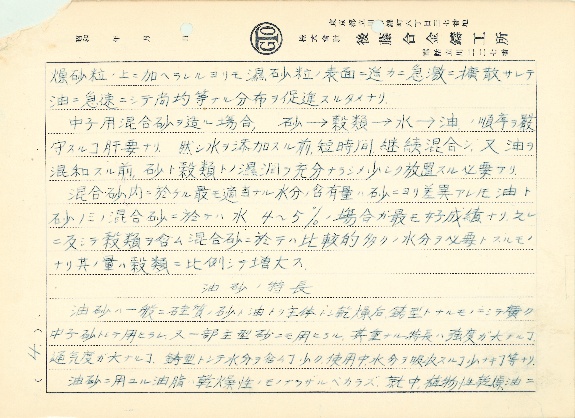 昭和 年 月 日
GTO
株式会社 後藤合金鑄工所
燥砂粒ノ上ニ加ヘラレルヨリモ濕砂粒ノ表面ニ速カニ急激ニ擴散サレテ
油ニ急速ニシテ尚均等ナル分布ヲ促進スルタメナリ
中子用混合砂ヲ造ル場合 砂→穀類→水→油ノ順序ヲ嚴
守スルヿ肝要ナリ 然シ水ヲ添加スル有短時間継続混合シ 又油ヲ
混和スル前 砂ト穀類トノ濕潤ヲ充分ナラシメ少シク放置スル必要ナリ
混合砂内ニ於ケル最モ適当ナル水分ノ含有量ハ砂ニヨリ差異アレモ油ト
砂ノミノ混合砂ニ於テハ水 4〜5%ノ場合が最モ好成績ナリ 之レ
ニ反シテ穀類ヲ含ム混合砂ニ於テハ比較的多クノ水分ヲ必要トスルモノ
ナリ其ノ量ハ穀類ニ比例シテ増大ス
油砂ノ特長
油砂ハ一般ニ硅質ノ砂ノ油トヲ主体トシ乾燥后鋳型トナルモノニシテ
中子砂トシテ用ヒラル 又一部主型砂ニモ用ヒラル 其重ナル特長ハ強度が大ナルヿ
通気度が大ナルヿ 鋳型トシテ水分ヲ含ムヿ少ク使用中水分ヲ吸收スルヿ少ナキヿ等ナリ
油砂ニ用ユル油脂ハ乾燥性ノモノナラザルベカラズ 就中植物性乾燥油ニ
(4.)